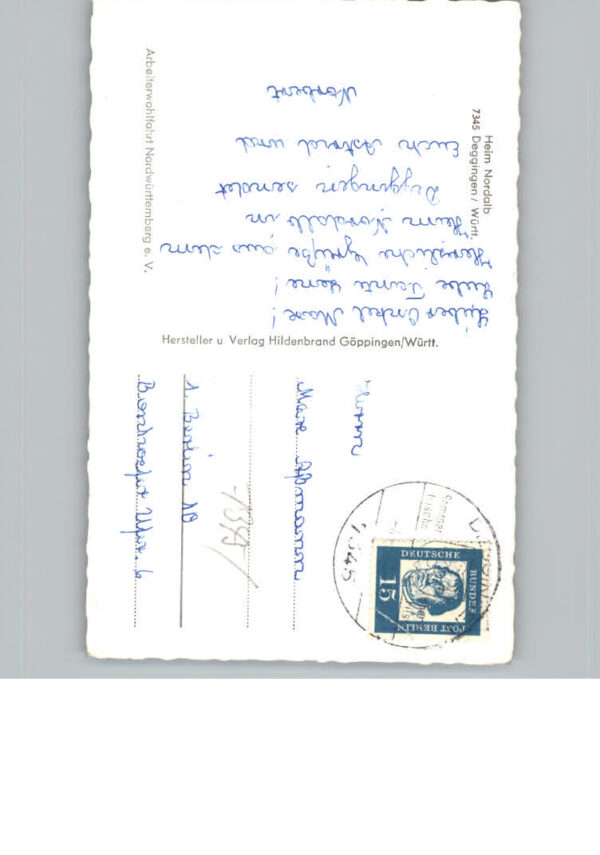 Heim Nordalb
7345 Deggingen / Württ.
Lieber Onkel Max!
Liebe Tante Lene!
Herzliche Grüße aus dem
Heim Nordalb in
Deggingen sendet
Euch Astrid und
Norbert
Arbeiterwohlfahrt Nordwürttemberg e. V.
Hersteller u. Verlag Hildenbrand Göppingen/Württ.
Herrn
Max
1 Berlin 10
Bonhoefer Ufer 6
-,35/
7345
DEUTSCHE
BUNDES
POST BERLIN
15